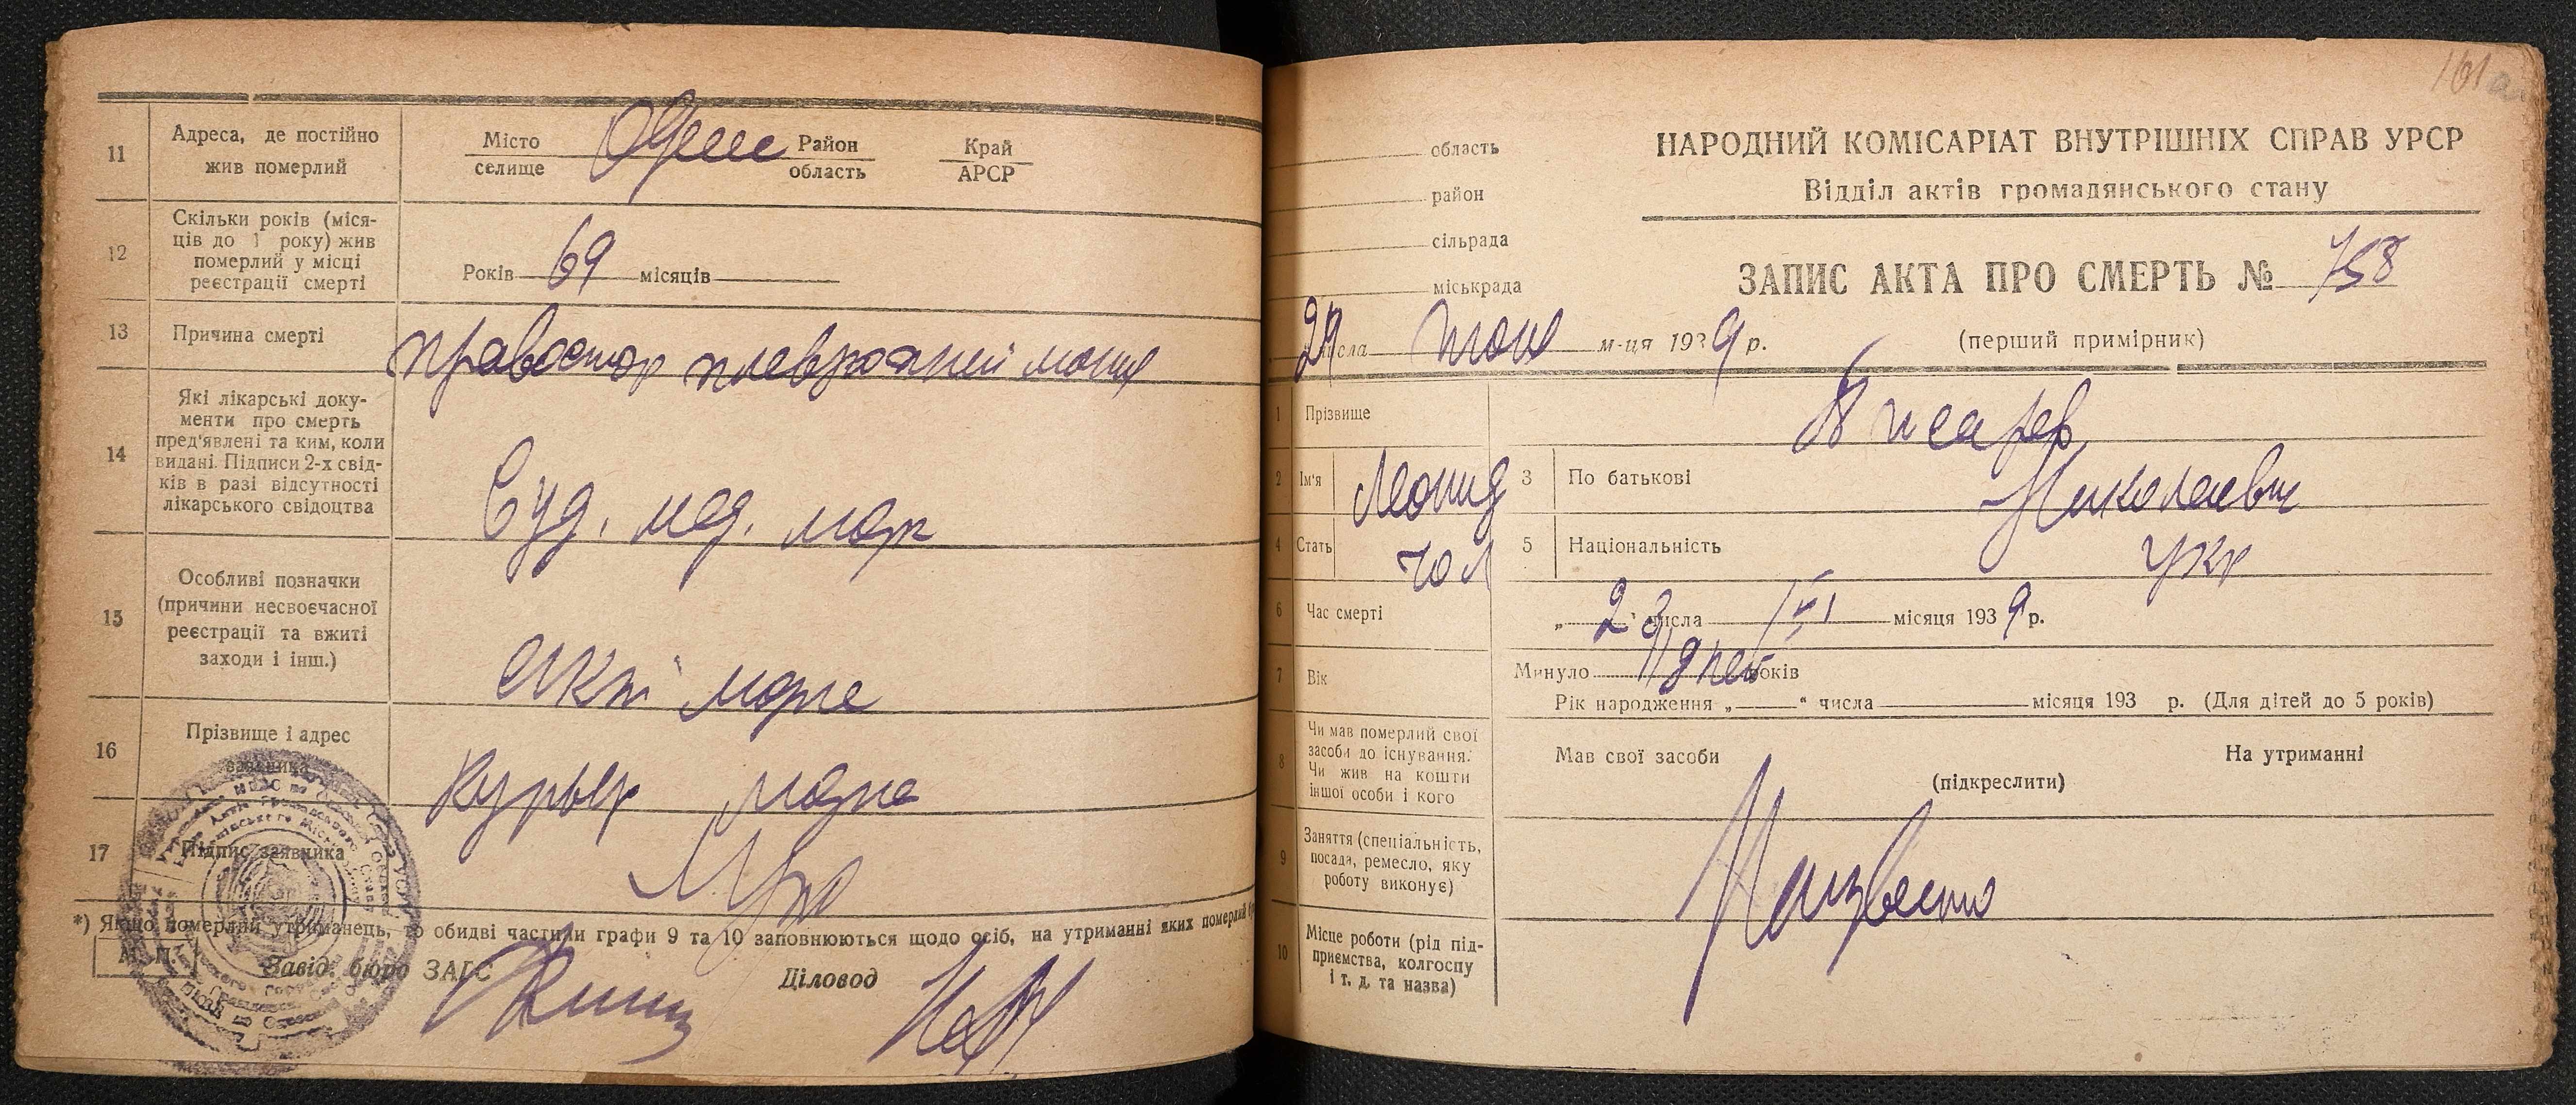 11
Адреса, де постійно
жив померлий
Місто
селище
Одесс
Район
область
Край
АРСР
12
Скільки років (міся-
ців до 1 року) жив
померлий у місці
реєстрації смерті
Років 69 місяців
13
Причина смерті
правостор
14
Які лікарські доку-
менти про смерть
пред'явлені та ким, коли
видані. Підписи 2-х свід-
ків в разі відсутності
лікарського свідоцтва
Суд. мед. морг
15
Особливі позначки
(причини несвоєчасної
реєстрації та вжиті
заходи і інш.)
морге
16
Прізвище і адрес
заявника
Курьер морга
17
Підпис заявника
*) Якщо померлий утриманець, то обидві частини графи 9 та 10 заповнюються щодо осіб, на утриманні яких померлий
М. П.
Завід. бюро ЗАГС
Діловод
161а
область
район
сільрада
міськрада
НАРОДНИЙ КОМІСАРІАТ ВНУТРІШНІХ СПРАВ УРСР
Відділ актів громадянського стану
ЗАПИС АКТА ПРО СМЕРТЬ № 758
(перший примірник)
числа м-ця 1939 р.
1
Прізвище
Писарев
2
Ім'я
Леонид
3
По батькові
Николаевич
4
Стать
чол
5
Національність
укр
6
Час смерті
„ 23 числа місяця 1939 р.
7
Вік
Минуло дней років
Рік народження „ “ числа місяця 193 р. (Для дітей до 5 років)
8
Чи мав померлий свої
засоби до існування.
Чи жив на кошти
іншої особи і кого
Мав свої засоби
На утриманні
(підкреслити)
9
Заняття (спеціальність,
посада, ремесло, яку
роботу виконує)
10
Місце роботи (рід під-
приємства, колгоспу
і т. д. та назва)